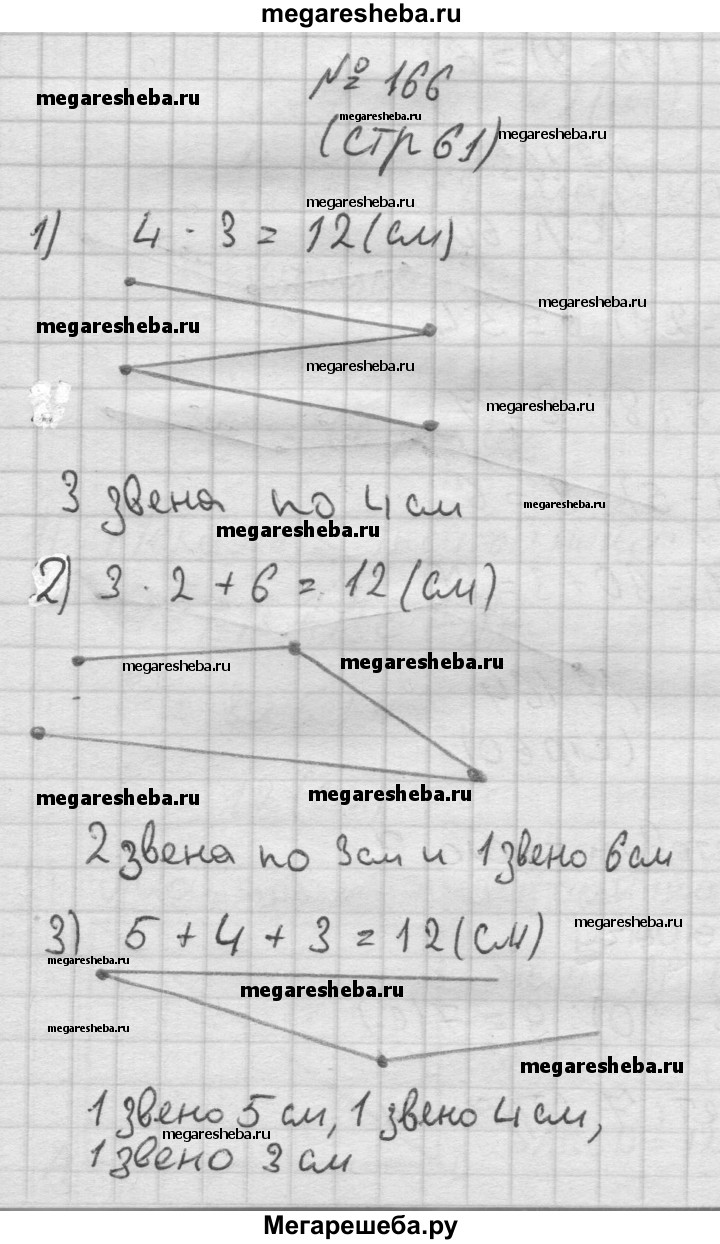 megaresheba.ru
№ 166
megaresheba.ru
megaresheba.ru
(стр 61)
megaresheba.ru
megaresheba.ru
1) 4 · 3 = 12 (см)
megaresheba.ru
megaresheba.ru
megaresheba.ru
megaresheba.ru
3 звена по 4 см
megaresheba.ru
megaresheba.ru
2) 3 · 2 + 6 = 12 (см)
megaresheba.ru
megaresheba.ru
megaresheba.ru
megaresheba.ru
2 звена по 3 см и 1 звено 6 см
3) 5 + 4 + 3 = 12 (см)
megaresheba.ru
megaresheba.ru
megaresheba.ru
megaresheba.ru
megaresheba.ru
1 звено 5 см, 1 звено 4 см,
megaresheba.ru
1 звено 3 см
Мегарешеба.ру